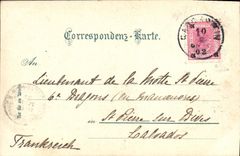 Correspondenz-Karte.
10
02
An
Lieutenant de la Motte St Pierre
6e Dragons (en manœuvres)
in St Pierre sur Dives
Calvados
Frankreich